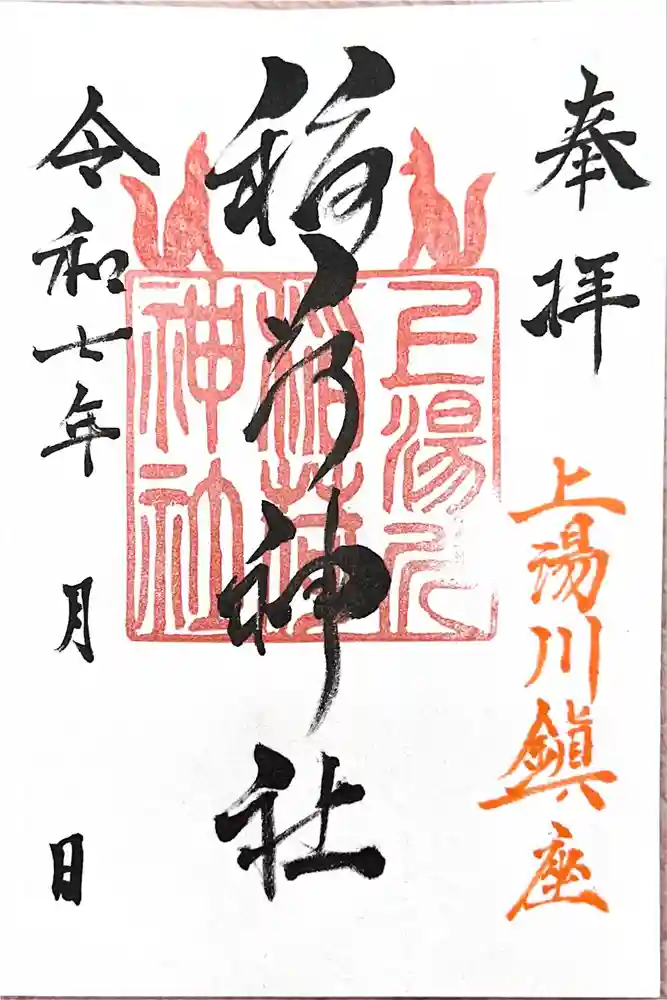 奉拝
上湯川鎮座
稲荷神社
上湯川
稲荷
神社
令和七年 月 日